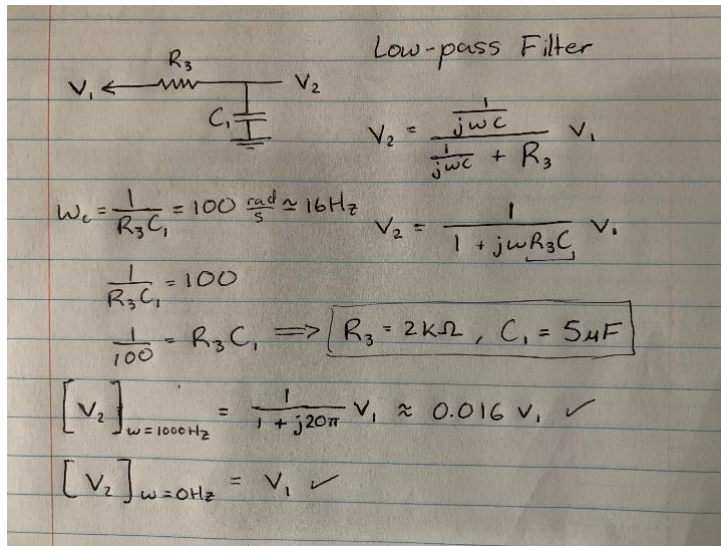 Low-pass Filter
R₃
V₁ V₂
C₁
V₂ = (1/(jωC)) / (1/(jωC) + R₃) V₁
ω_c = 1/(R₃C₁) = 100 rad/s ≃ 16Hz
V₂ = 1/(1 + jωR₃C) V₁
1/(R₃C₁) = 100
1/100 = R₃C₁ ⟹ R₃ = 2kΩ, C₁ = 5μF
[V₂]_ω=1000Hz = 1/(1 + j20π) V₁ ≈ 0.016 V₁ ✓
[V₂]_ω=0Hz = V₁ ✓